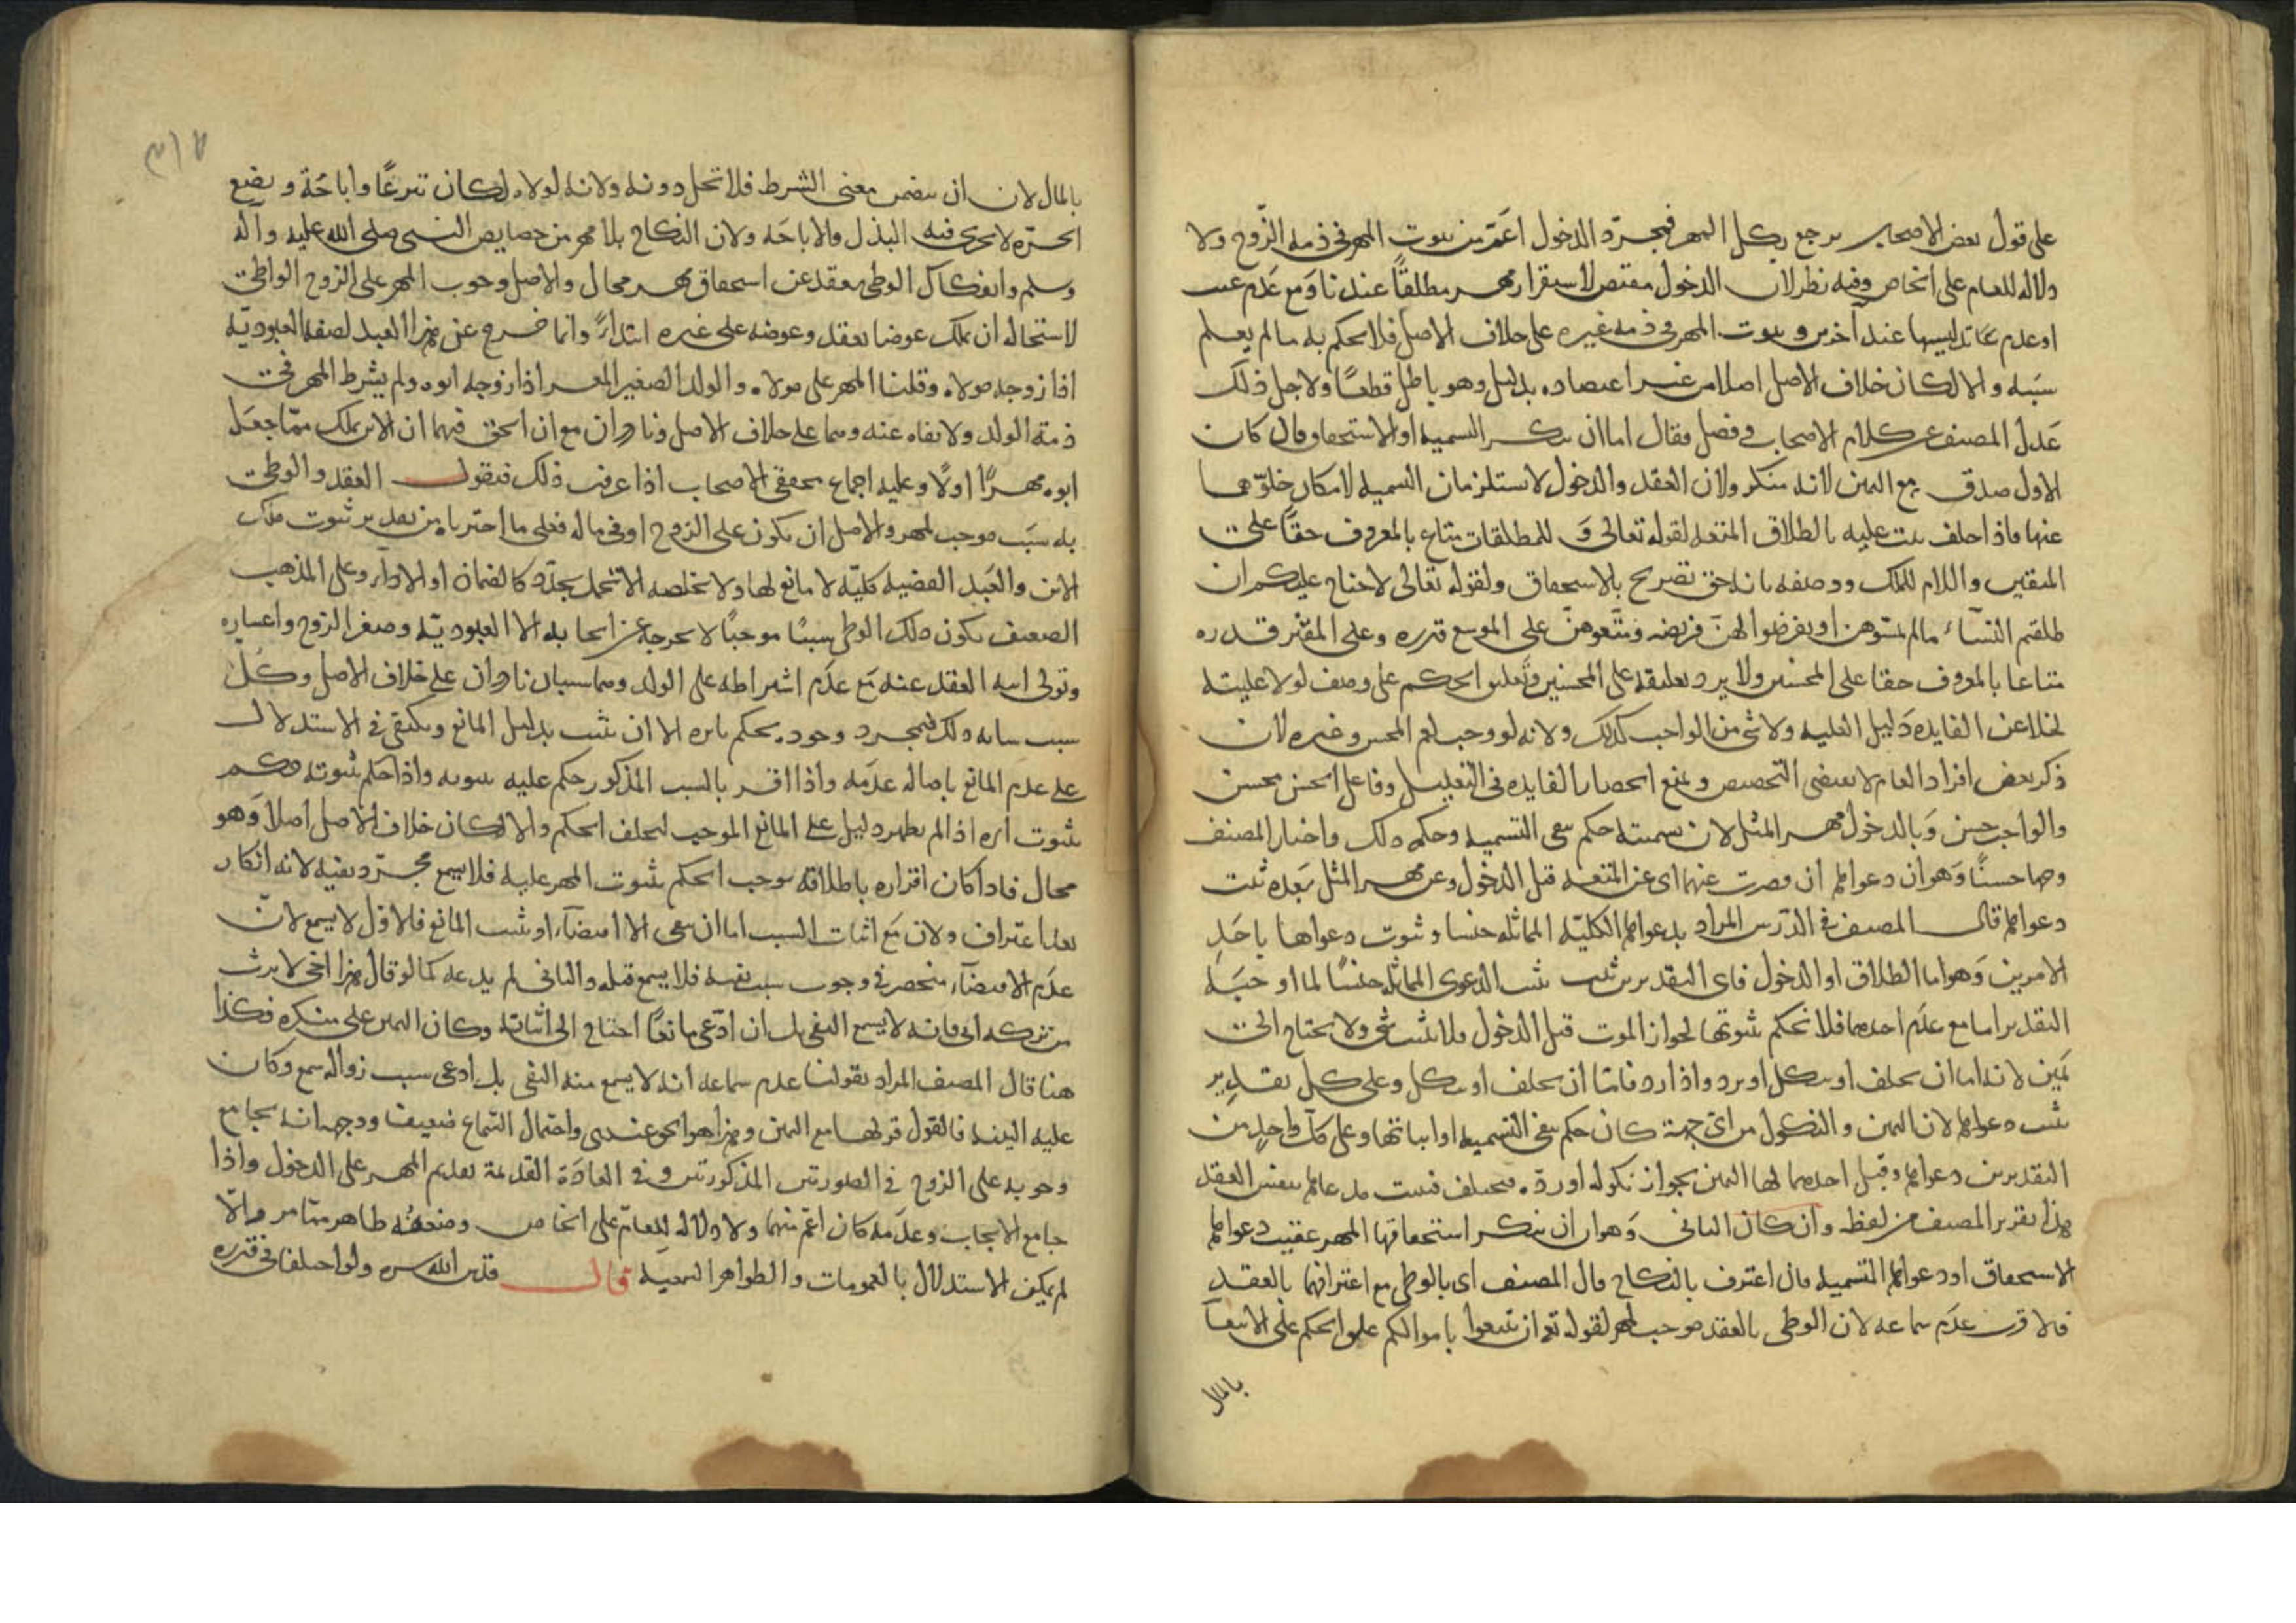 على قول بعض الاصحاب يرجع بكل المهر فمجرد الدخول اعم من ثبوت المهر فى ذمه الزوج ولا
دلاله للعام على الخاص وفيه نظر لان الدخول مقتض لاستقرار مهر مطلقا عندنا ومع عدم
او عدم عند آخرين وثبوت المهر فى ذمه غيره على خلاف الاصل فلا يحكم به مالم يعلم
سببه والا لكان خلاف الاصل اصلا من غير اعتضاده بدليل وهو باطل قطعا ولاجل ذلك
عدل المصنف عن كلام الاصحاب فى فصل فقال اما ان ينكر التسميه او الاستحقاق فان كان
الاول صدق مع اليمين لانه منكر ولان العقد والدخول لا يستلزمان التسميه لامكان خلوهما
عنها فاذا حلف ثبت عليه بالطلاق المتعه لقوله تعالى و للمطلقات متاع بالمعروف حقا على
المتقين واللام للملك ووصفه بانه حق تصريح بالاستحقاق ولقوله تعالى لا جناح عليكم ان
طلقتم النساء مالم تمسوهن او تفرضوا لهن فريضه ومتعوهن على الموسع قدره وعلى المقتر قدره
متاعا بالمعروف حقا على المحسنين ولا يرد تعليقه على المحسنين وتعليق الحكم على وصف لولا عليته
لخلا عن الفايده دليل العليه ولا شى من الواجب كذلك ولانه لو وجب لعم المحسن وغيره لان
ذكر بعض افراد العام لا يقتضى التخصيص و يمنع انحصار الفايده فى التعليل وفاعل الحسن محسن
والواجب حسن وبالدخول مهر المثل لان يمينه حكم بنفى التسميه وحكمه ذلك واختار المصنف
وجها حسنا وهو ان دعواها ان قصرت عنهما اى عن المتعه قبل الدخول وعن مهر المثل بعده ثبت
دعواها قال المصنف فى الدرس المراد بدعواها الكليه المماثله جنسا وثبوت دعواها باحد
الامرين وهو اما الطلاق او الدخول فاى التقديرين ثبت ثبت الدعوى المماثله جنسا لما اوجبه
التقدير اما مع عدم احدهما فلا نحكم بثبوتها لجواز الموت قبل الدخول فلا يثبت شى ولا يحتاج الى
يمين لانه اما ان يحلف او ينكل او يرد واذا رد فاما ان تحلف او تنكل وعلى كل تقدير
ثبت دعواها لان اليمين والنكول من اى جهة كان حكم بنفى التسميه او اثباتها وعلى كل واحد من
التقديرين دعواها وقبل احدهما لها اليمين بجواز نكوله اورده فتحلف فيثبت مدعاها بنفس العقد
هذا تقرير المصنف من لفظه وان كان الثانى وهو ان ينكر استحقاقها المهر عقيب دعواها
الاستحقاق او دعواها التسميه فان اعترف بالنكاح قال المصنف اى بالوطى مع اعترافهما بالعقد
فالاقرب عدم سماعه لان الوطى بالعقد موجب لمهر لقوله تع ان تبتغوا باموالكم علق الحكم على الابتغاء
بالمال
٣١٢
بالمال لان ان يتضمن معنى الشرط فلا تحل دونه ولانه لولاه لكان تبرعا واباحة وبضع
الحره لا يجرى فيه البذل والاباحه ولان النكاح بلا مهر من خصايص النبى صلى الله عليه وآله
وسلم وانفكاك الوطى بعقد عن استحقاق مهر محال والاصل وجوب المهر على الزوج الواطى
لاستحاله ان يملك عوضا بعقد وعوضه على غيره ابتداءً وانما خرج عن هذا العبد لصفه العبوديه
اذا زوجه مولاه وقلنا المهر على مولاه والولد الصغير المعسر اذا زوجه ابوه ولم يشرط المهر فى
ذمة الولد ولا نفاه عنه وهما على خلاف الاصل ونادران مع ان الحق فيهما ان الابن يملك مما جعل
ابوه مهرا اولا وعليه اجماع محققى الاصحاب اذا عرفت ذلك فنقول العقد والوطى
به سبب موجب لمهر والاصل ان يكون على الزوج او فى ماله فعلى ما اخترناه من تقدير ثبوت ملك
الابن والعبد القضيه كليه لا مانع لها ولا مخلصه الا تحمل يجدد كالضمان او الاداء وعلى المذهب
الضعيف يكون ذلك الوطى سببا موجبا لا يخرجه عن ايجابه الا العبوديه وصغر الزوج واعساره
وتولى ابيه العقد عنه مع عدم اشتراطه على الولد وهما سببان نادران على خلاف الاصل وكل
سبب شانه ذلك فبمجرد وجوده يحكم باثره الا ان يثبت بدليل المانع ويكتفى فى الاستدلال
على عدم المانع باصاله عدمه واذا اقر بالسبب المذكور حكم عليه بثبوته واذا حكم بثبوته حكم
بثبوت اثره اذا لم يظهر دليل على المانع الموجب لتخلف الحكم والا لكان خلاف الاصل اصلا وهو
محال فاذا كان اقراره باطلاقه يوجب الحكم بثبوت المهر عليه فلا يسمع مجرد نفيه لانه انكار
بعد اعتراف ولان مع اثبات السبب اما ان ينفى الاقتضاء او يثبت المانع فالاول لا يسمع لان
عدم الاقتضاء منحصر فى وجوب سبب نفيه فلا يسمع قبله والثانى لم يدعه كما لو قال هذا اخى لا يرث
من تركه ابى فانه لا يسمع النفى بل ان ادعى مانعا احتاج الى اثباته وكان اليمين على منكره فكذا
هنا قال المصنف المراد بقولنا عدم سماعه انه لا يسمع منه النفى بل ادعى سبب زواله سمع وكان
عليه البينه فالقول قولها مع اليمين وهذا هو الحق عندى واحتمال السماع ضعيف ووجهه انه يجامع
وجوبه على الزوج فى الصورتين المذكورتين وفى العادة القديمة تقديم المهر على الدخول واذا
جامع الايجاب وعدمه كان اعم منهما ولا دلاله للعام على الخاص وضعفه ظاهر مما مر والا
لم يمكن الاستدلال بالعمومات والظواهر السمعيه قال قدس الله سره ولو اختلفا فى قدره